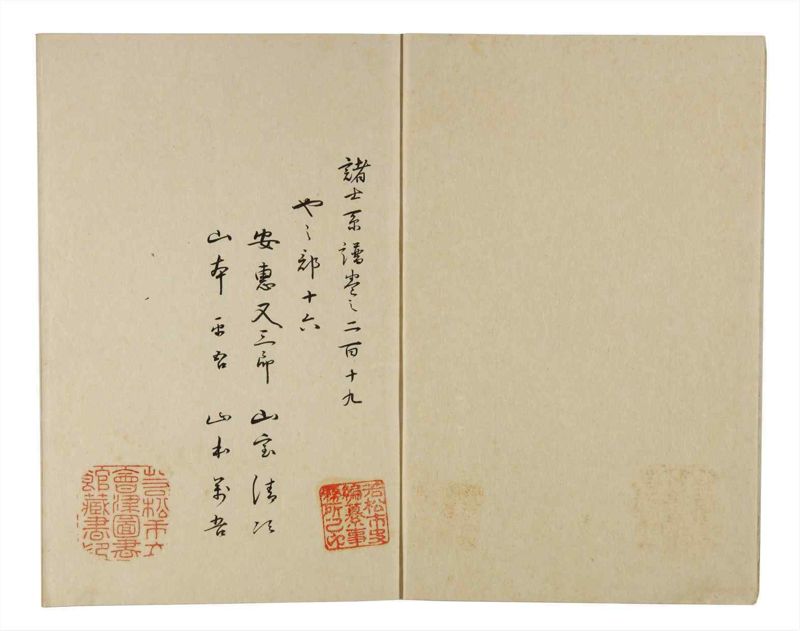 諸士系譜巻之二百十九
や之部十六
安恵又三郎 山室清次
山本平吾 山本万吾
若松市史編纂事務所之印
若松市立会津図書館蔵書印